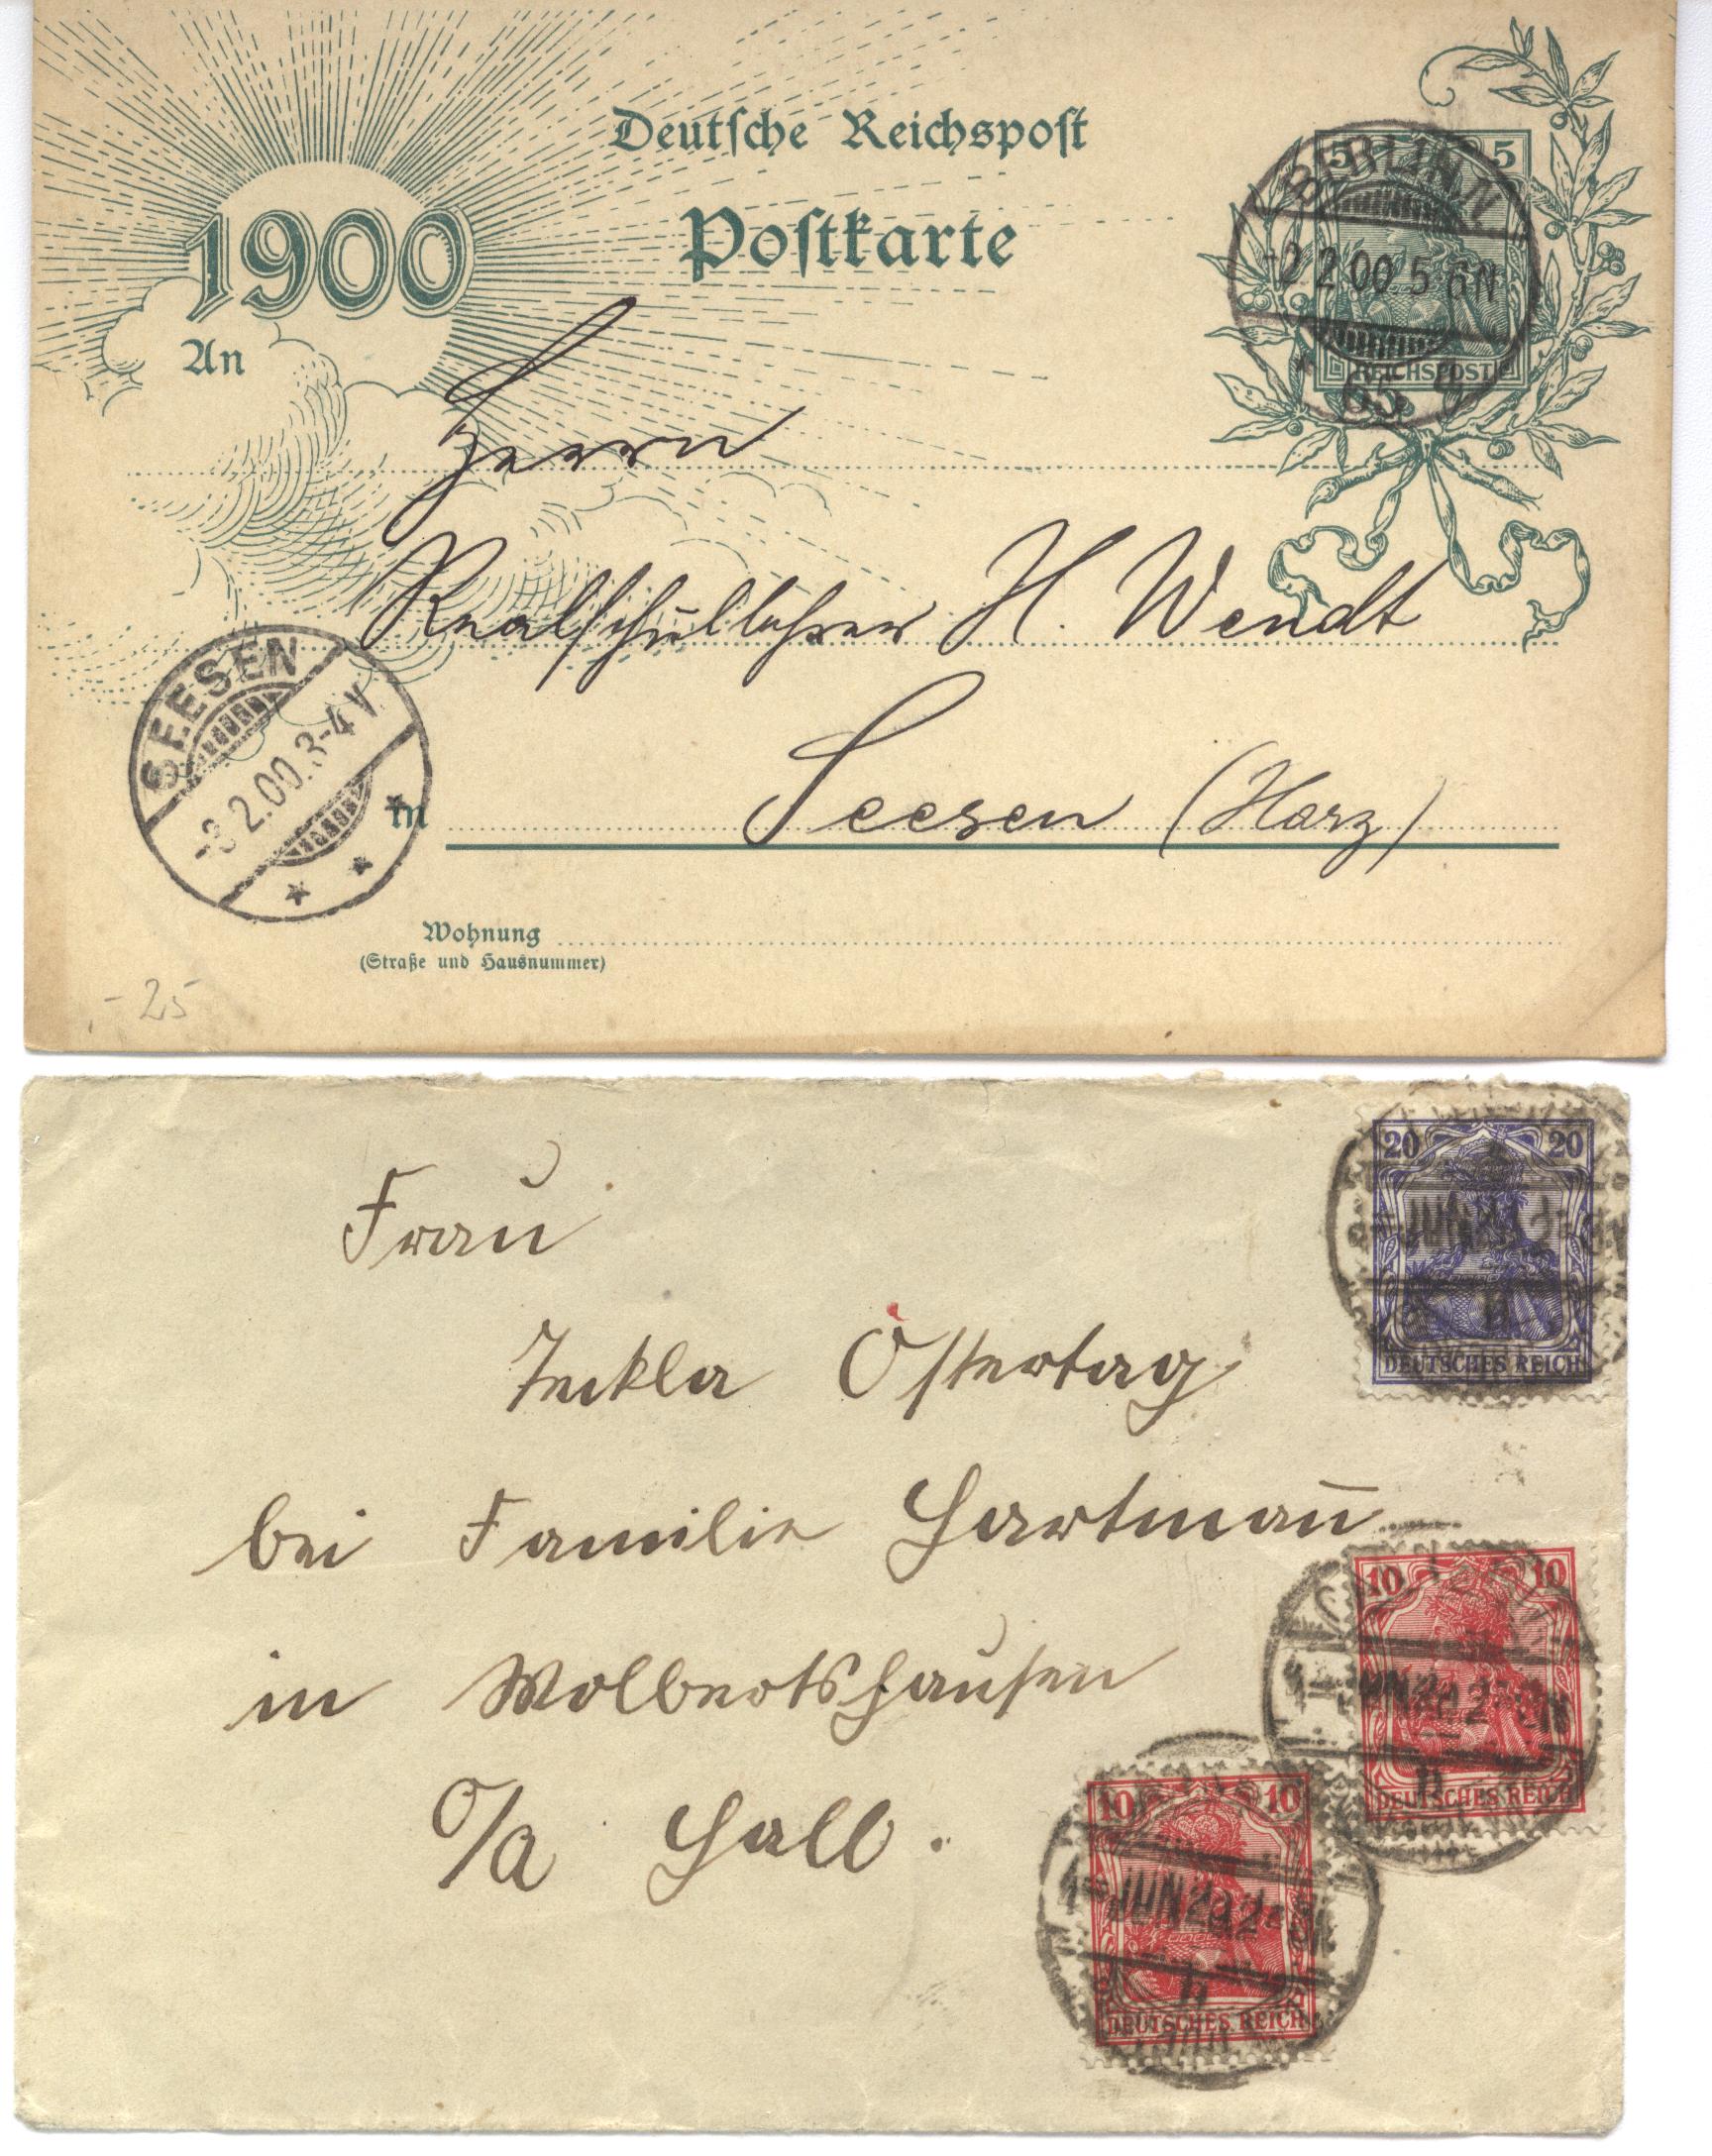 Deutsche Reichspost
Postkarte
1900
An
5 5
REICHSPOST
BERLIN N
-2 2 00 5 6N
* 65
Herrn
Realschullehrer H. Wendt
in Seesen (Harz)
SEESEN
-3 2.00. 3-4V.
* * *
Wohnung
(Straße und Hausnummer)
,-25
20 20
DEUTSCHES REICH
Frau
Tekla Ostertag
bei Familie Hartmañ
in Wolbertshausen
O/A Hall.
10 10
DEUTSCHES REICH
10 10
JUN 20 2
DEUTSCHES REICH